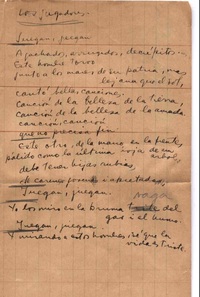 Los jugadores.
Juegan, juegan
Agachados, arrugados, decrépitos.
Este hombre torvo
junto a los mares de su patria, mas
lejana que el sol,
cantó bellas canciones.
Canción de la belleza de la tierra,
canción de la belleza de la amada.
canción, canción
que no precisa fin.
Este otro, de la mano en la frente,
pálido como la última hoja de un
árbol,
debe tener hijas rubias,
de carne
apretadas,
Juegan, juegan.
Yo los miro en la bruma
gas i el humo.
Juegan, juegan.
Y mirando estos hombres, sé que la
vida es triste.